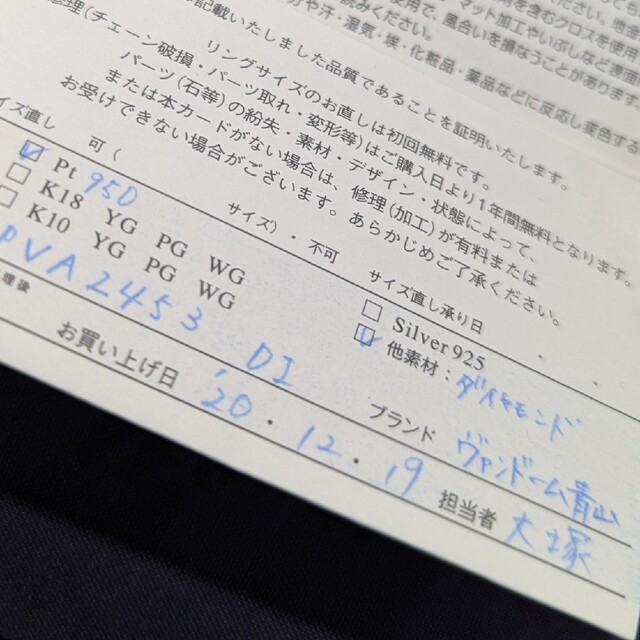 マット加工やいぶしなど表面
風合いを損なうことがあります
汗・湿気・炎・化粧品・薬品などに反応し変色する
記載いたしました品質であることを証明いたします。
リングサイズのお直しは初回無料です。
修理(チェーン破損・パーツ取れ・変形等)はご購入日より1年間無料となります。
パーツ(石等)の紛失・素材・デザイン・状態によって、
または本カードがない場合は、修理(加工)が有料または
お受けできない場合がございます。あらかじめご了承ください。
イズ直し 可( サイズ)・不可 サイズ直し承り日 ・ ・
Pt 950 Silver 925
K18 YG PG WG 他素材:ダイヤモンド
K10 YG PG WG
PVA2453 DI ブランド ヴァンドーム青山
お買い上げ日 '20・12・19 担当者 大塚